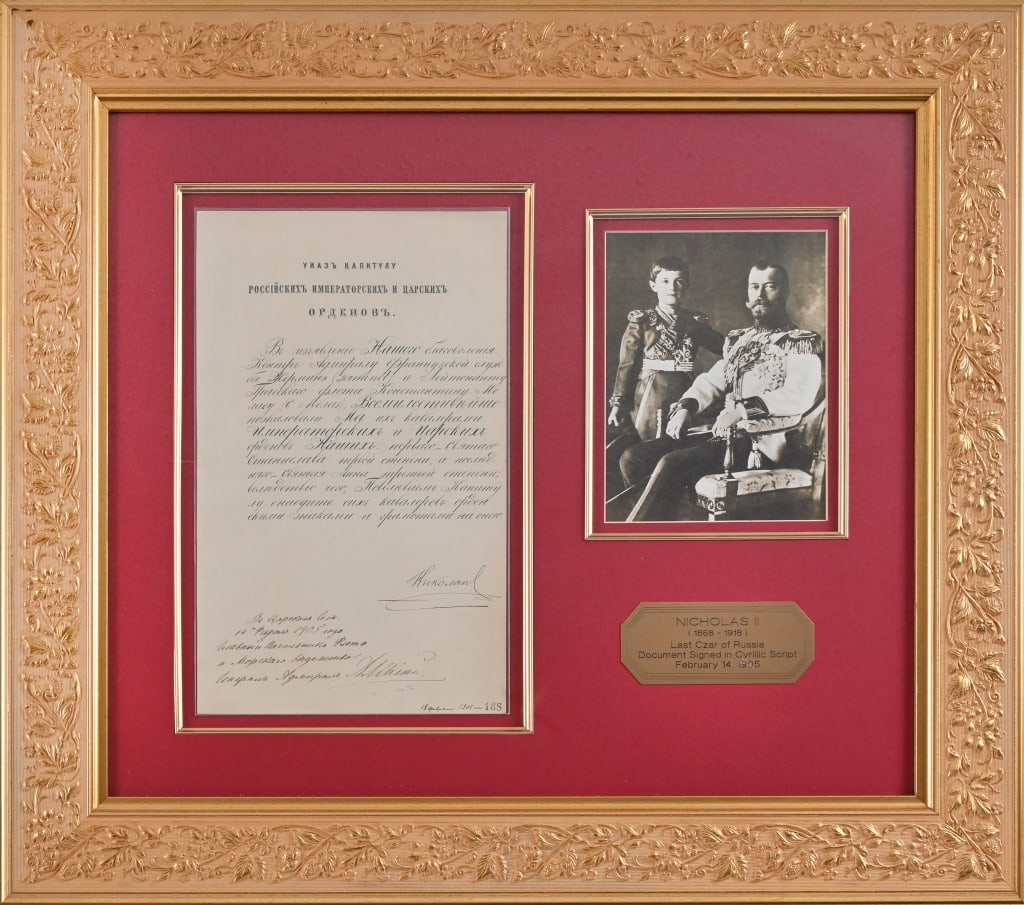 УКАЗЪ КАПИТУЛУ
РОССІЙСКИХЪ ИМПЕРАТОРСКИХЪ И ЦАРСКИХЪ
ОРДЕНОВЪ.
Въ изъявленіе Нашего благоволенія
Контръ Адмиралу Французской служ
бы и Лейтенанту
Греческаго флота Константину Ме
ласу Всемилостивѣйше
пожаловали Мы ихъ кавалерами
Императорскихъ и Царскихъ
орденовъ Нашихъ, перваго Святаго
Станислава первой степени, а послѣд
няго Святыя Анны третьей степени;
вслѣдствіе чего, Повелѣваемъ Капиту
лу снабдить сихъ кавалеровъ орден
скими знаками и грамотами на оные.
Николай
Въ Царскомъ Селѣ.
14го Февраля 1905 года
Главный Начальникъ Флота
и Морскаго Вѣдомства
Генералъ Адмиралъ
168
NICHOLAS II
(1868 - 1918)
Last Czar of Russia
Document Signed in Cyrillic Script
February 14, 1905